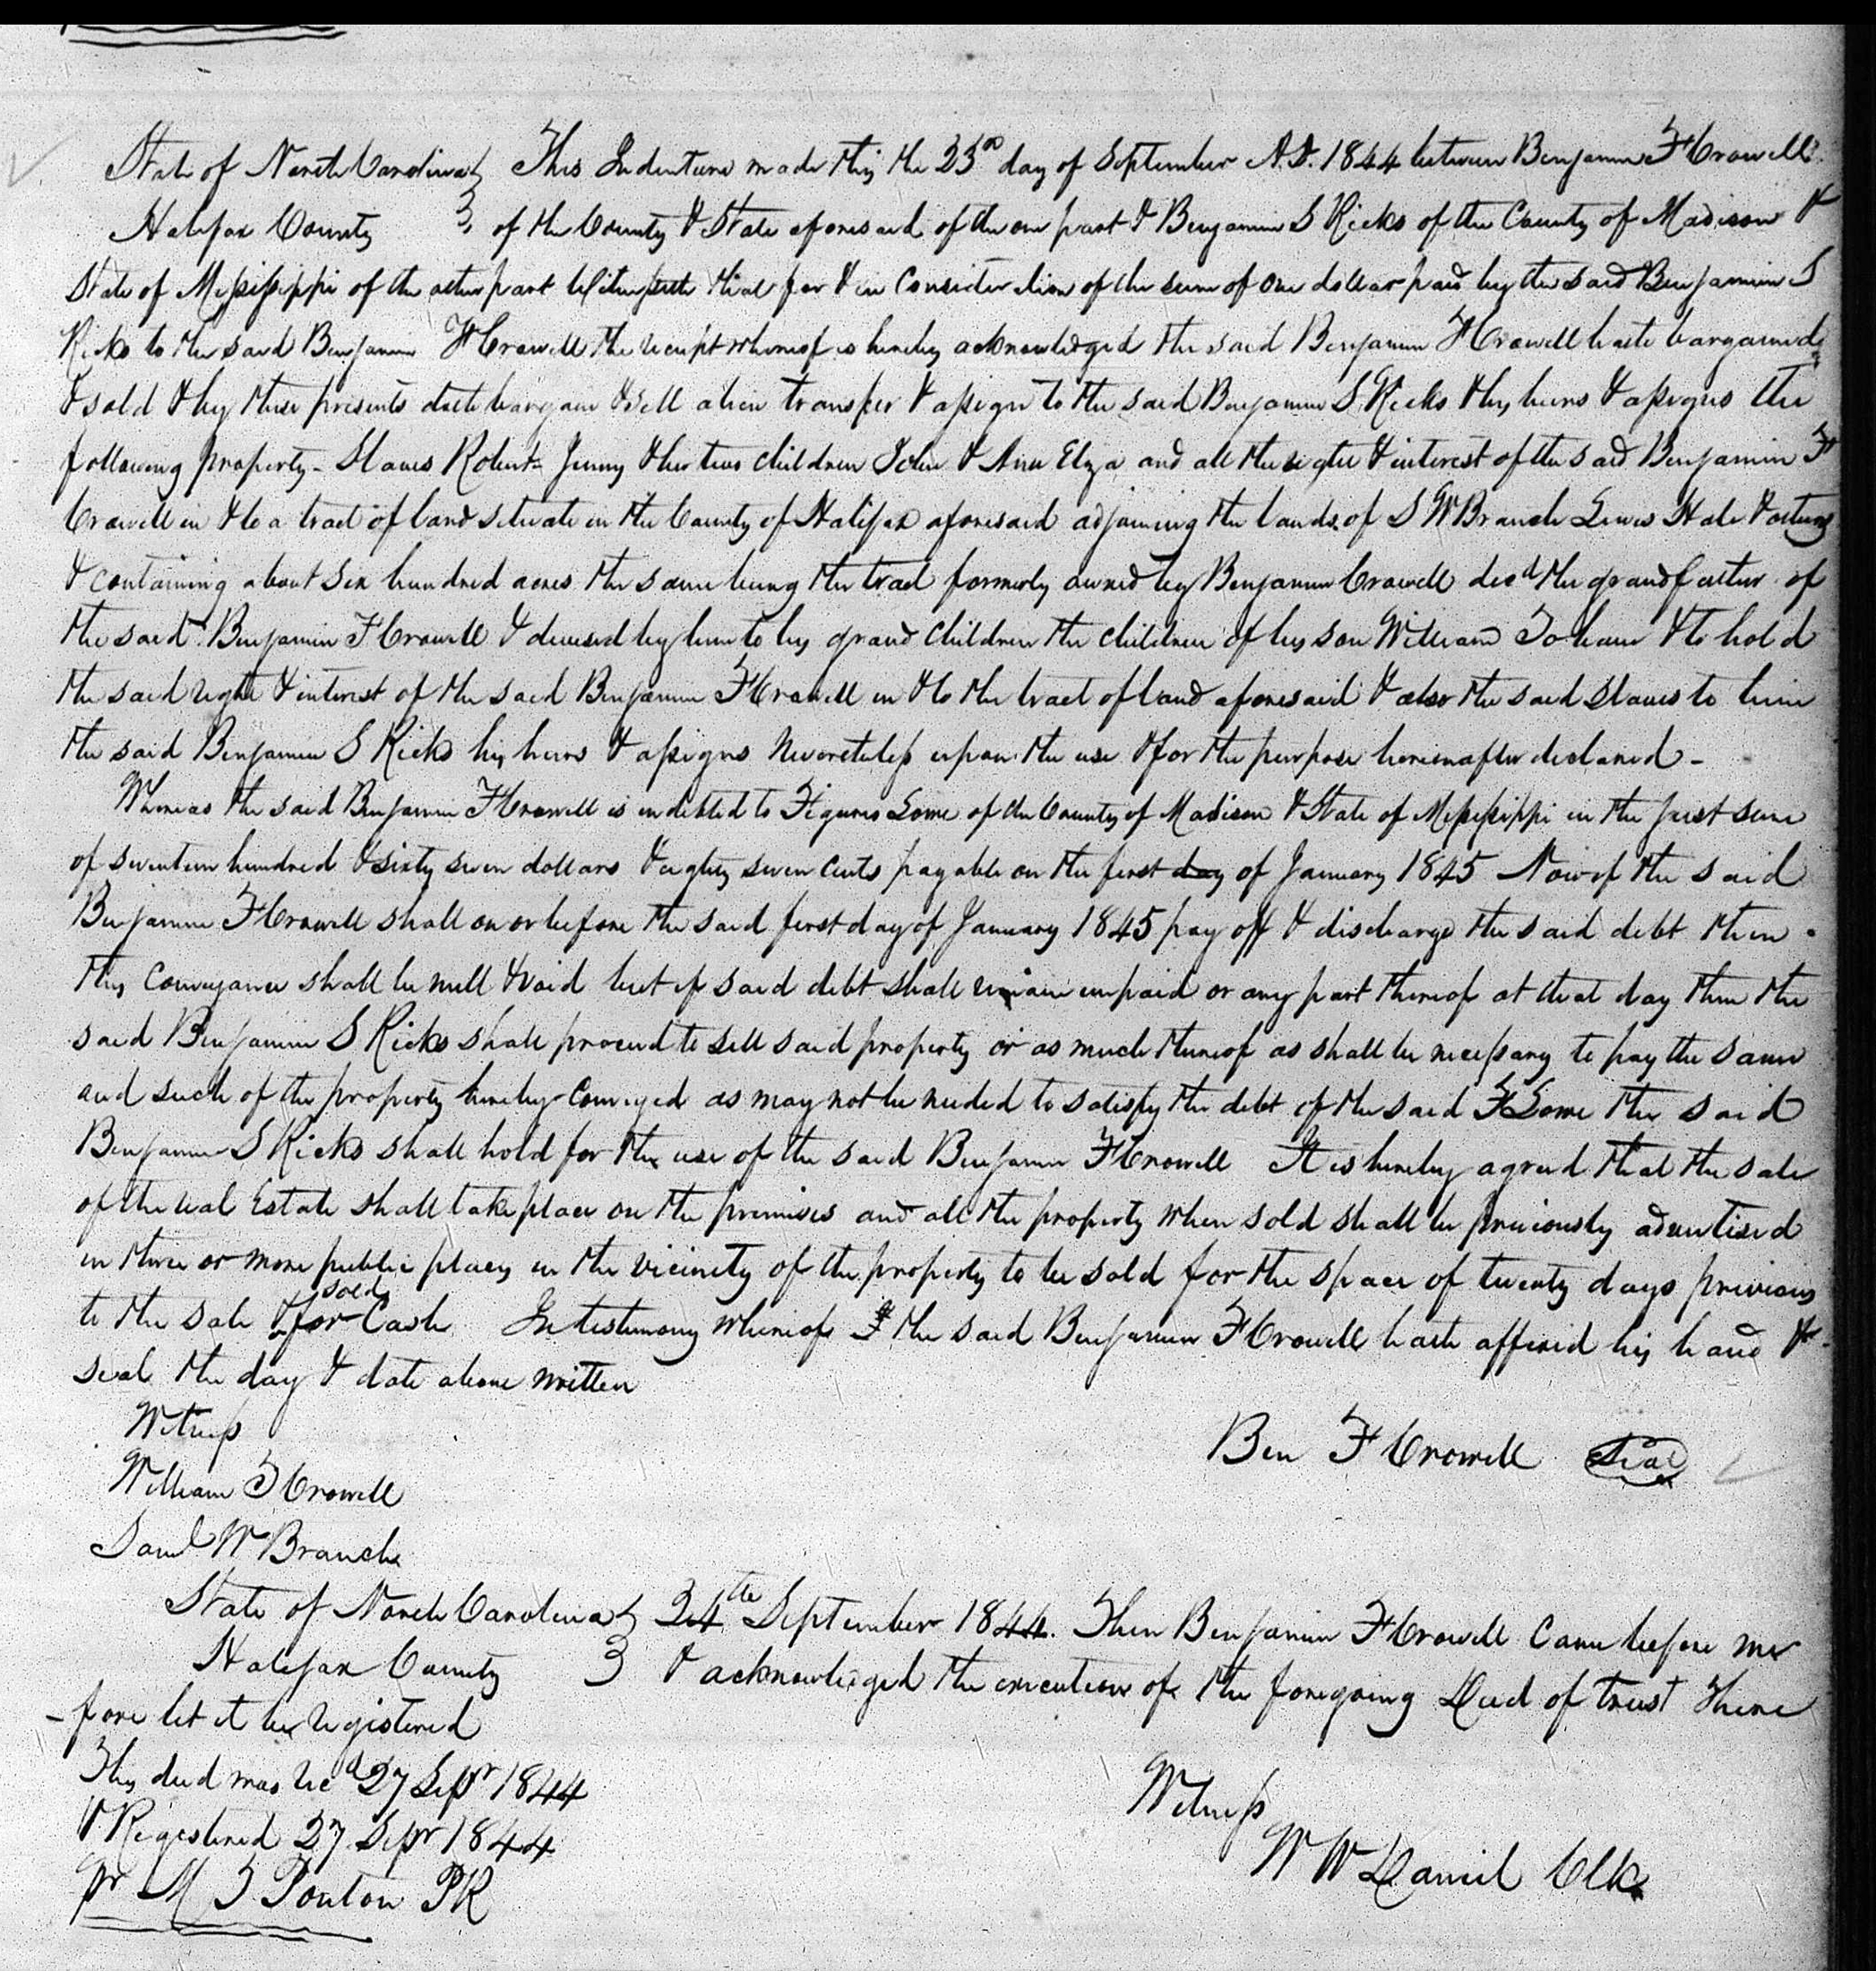 State of North Carolina } This Indenture made this the 23rd day of September A.D. 1844 between Benjamin F Crowell
Halifax County } of the County & State aforesaid of the one part & Benjamin S Ricks of the County of Madison &
State of Mississippi of the other part Witnesseth that for & in consideration of the sum of one dollar paid by the said Benjamin S
Ricks to the said Benjamin F Crowell the receipt whereof is hereby acknowledged the said Benjamin F Crowell hath bargained
& sold & by these presents doth bargain & sell alien transfer & assign to the said Benjamin S. Ricks & his heirs & assigns the
following property - Slaves Robert - Jenny & her two children John & Ann Elza and all the right & interest of the said Benjamin F
Crowell in & to a tract of land situate in the County of Halifax aforesaid adjoining the lands of S W Branch Lewis Hale & others
& containing about six hundred acres the same being the tract formerly owned by Benjamin Crowell decd the grandfather of
the said Benjamin F Crowell & devised by him to his grand children the children of his son William To have & to hold
the said right & interest of the said Benjamin F Crowell in & to the tract of land aforesaid & also the said slaves to him
the said Benjamin S Ricks his heirs & assigns Neveretheless upon the use & for the purpose hereinafter declared -
Whereas the said Benjamin F Crowell is indebted to Figures Lowe of the County of Madison & State of Mississippi in the just sum
of seventeen hundred & sixty seven dollars & eighty seven cents payable on the first day of January 1845 Now if the said
Benjamin F Crowell shall on or before the said first day of January 1845 pay off & discharge the said debt then
this conveyance shall be null & void but if said debt shall remain unpaid or any part thereof at that day then the
said Benjamin S Ricks shall proceed to sell said property or as much thereof as shall be necessary to pay the same
and such of the property hereby conveyed as may not be needed to satisfy the debt of the said F Lowe the said
Benjamin S Ricks shall hold for the use of the said Benjamin F Crowell It is hereby agreed that the sale
of the real Estate shall take place on the premises and all the property when sold shall be previously advertised
in three or more public places in the vicinity of the property to be sold for the space of twenty days previous
to the sale & sold for Cash In testimony whereof the said Benjamin F Crowell hath affixed his hand &
seal the day & date above written
Witness
Ben F Crowell Seal
William T Crowell
Saml W Branch
State of North Carolina } 24th September 1844. Then Benjamin F Crowell came before me
Halifax County } & acknowledged the execution of the foregoing Deed of trust There
-fore let it be registered
This deed was recd 27 Sepr 1844
Witness
& Registered 27 Sepr 1844
W W Daniel Clk
pr M T Ponton PR